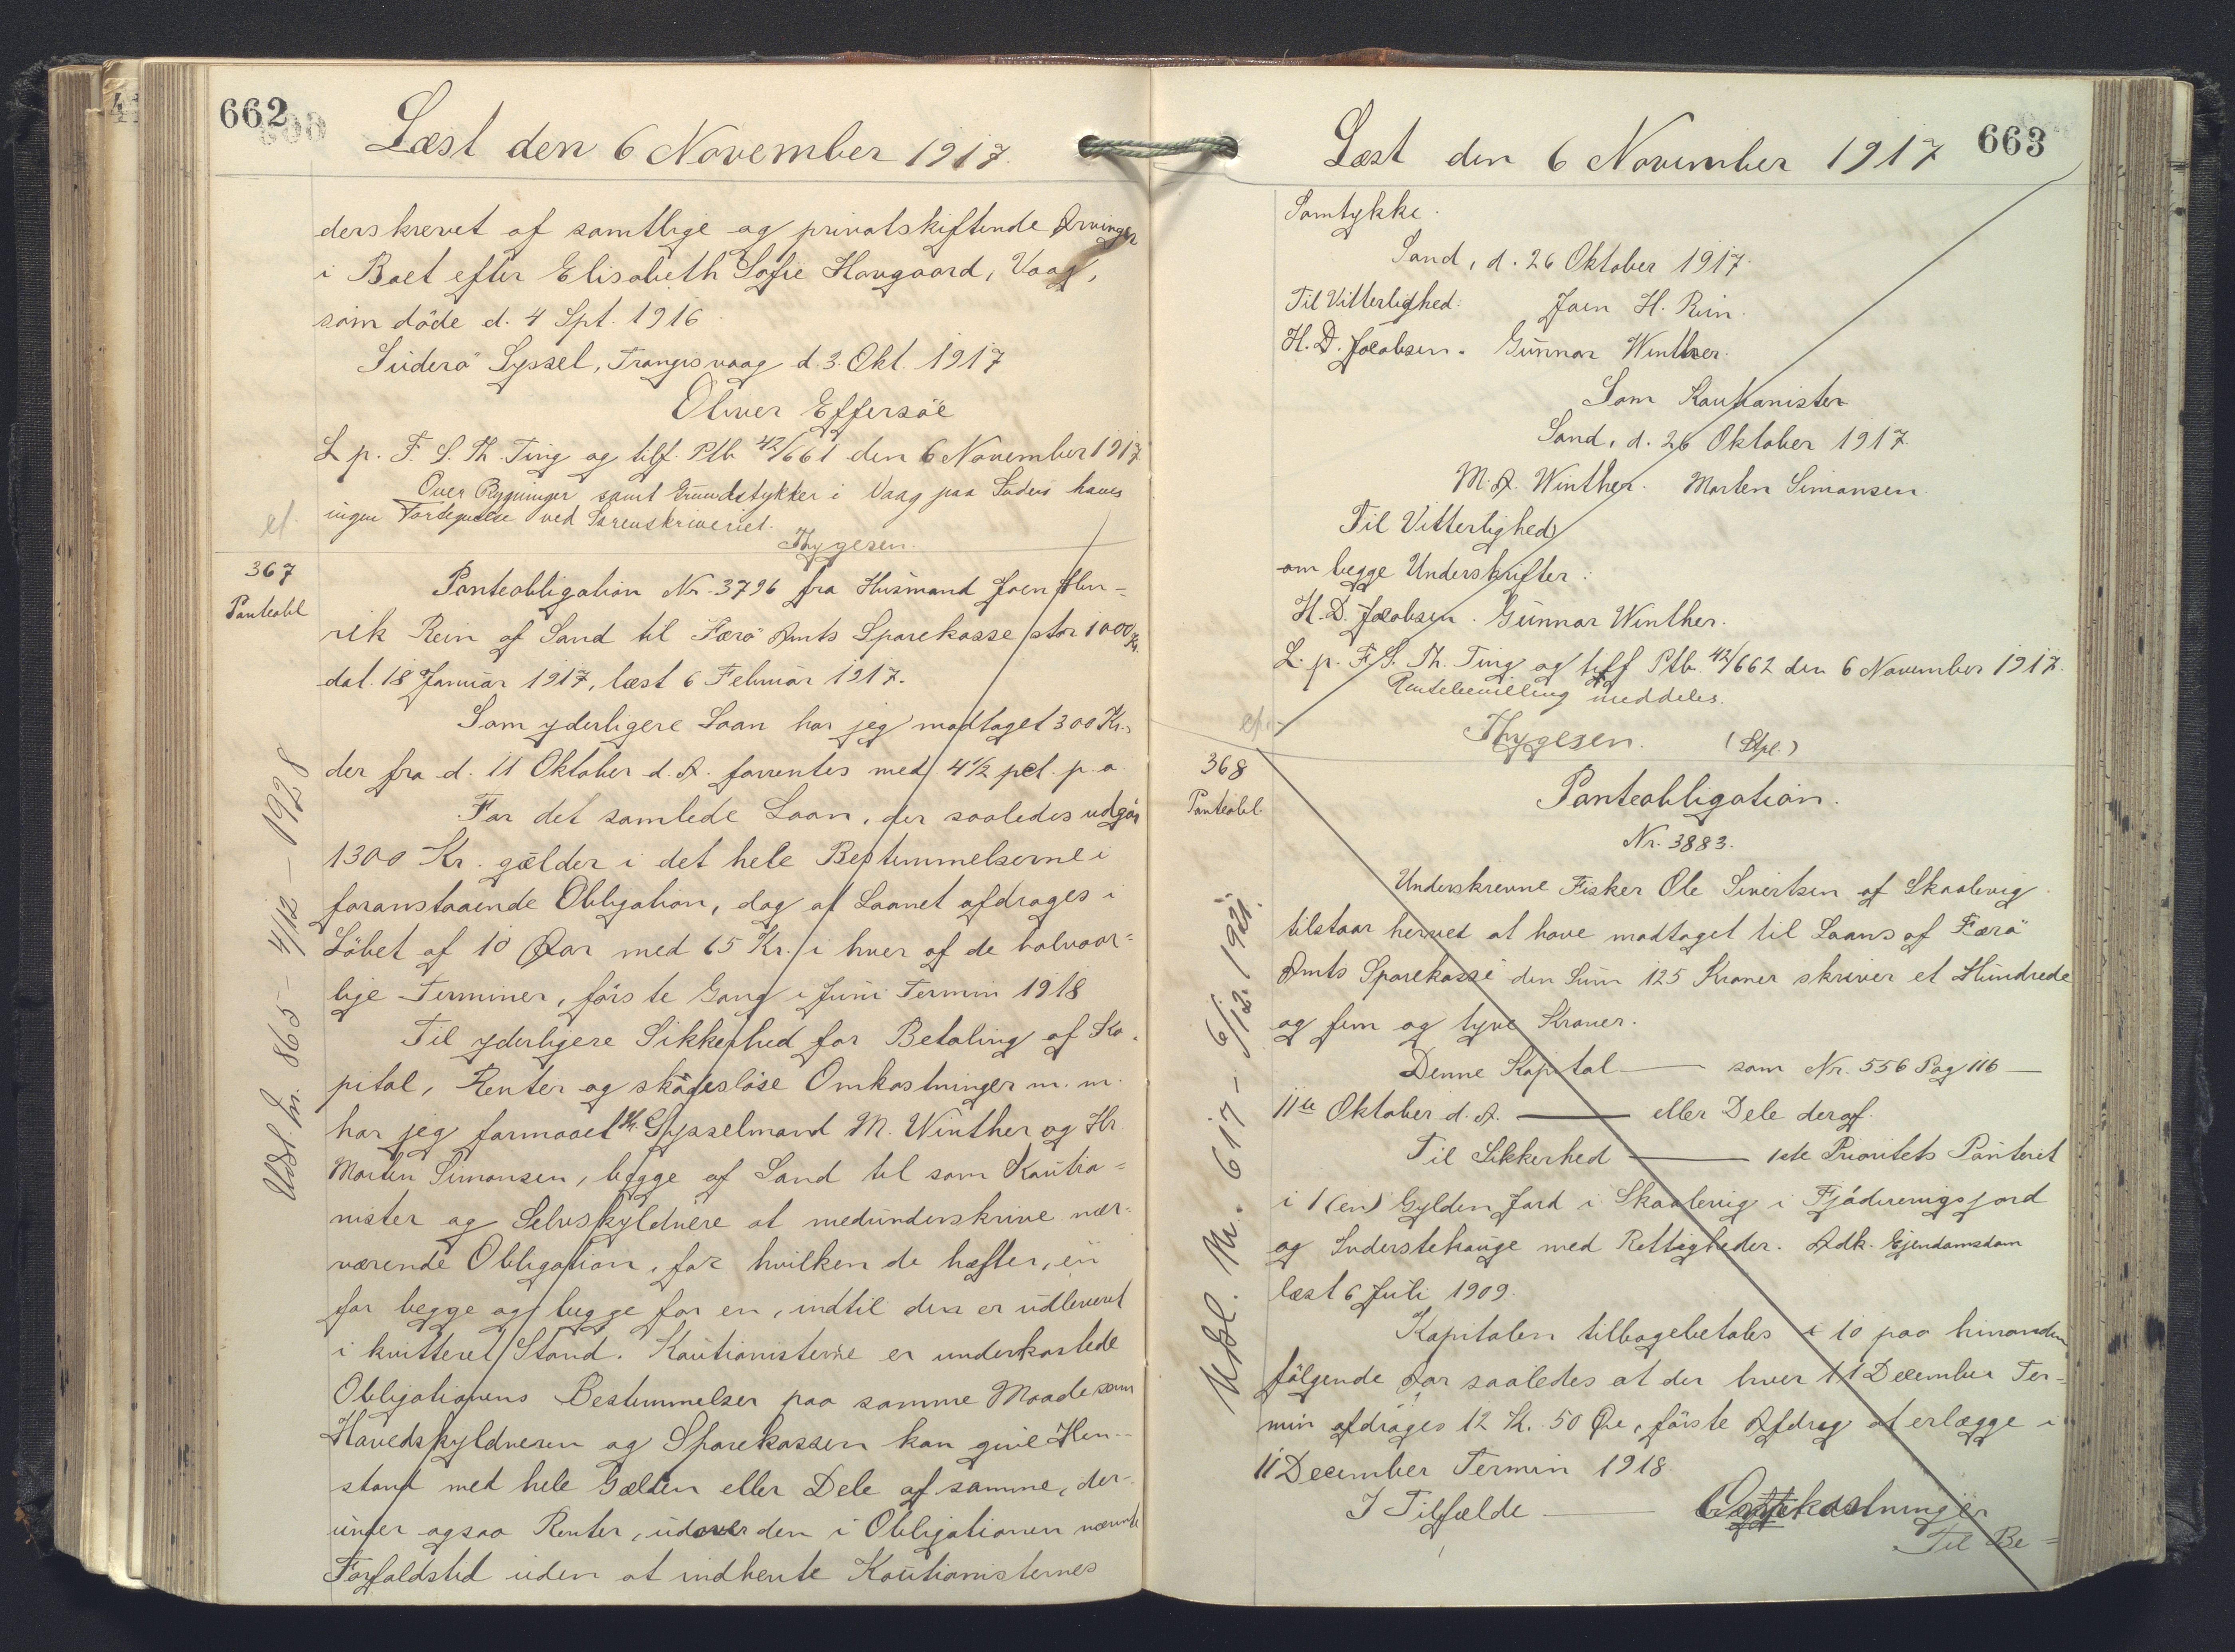 662
Læst den 6 November 1917.
derskrevet af samtlige og privatskiftende Arvinger
i Boet efter Elisabeth Sofie Havgaard, Vaag,
som döde d. 4 Spt. 1916.
Süderö Syssel, Trangisvaag d. 3. Okt. 1917
Oliver Effersöe
L p. F. S. Th. Ting og tilf. Ptb. 42/661 den 6 November 1917
Over Bygninger samt Grundstykker i Vaag paa Suderö haves
ingen Vordegnelse ved Sorenskriveriet.
Thygesen.
ef.
367
Panteobl
Panteobligation Nr. 3796 fra Husmand Joen Hen=
rik Rein af Sand til Færö Amts Sparekasse stor 1000 Kr.
dat. 18 Januar 1917, læst 6 Februar 1917.
Som yderligere Laan har jeg modtaget 300 Kr.,
der fra d. 11 Oktober d. A. forrentes med 4½ pct. p. a.
For det samlede Laan, der saaledes udgör
1300 Kr. gælder i det hele Bestemmelserne i
foranstaaende Obligation, dog at Laanet afdrages i
Löbet af 10 Aar med 65 Kr. i hver af de halvaar=
lige Terminer, förste Gang i Juni Termin 1918
Til yderligere Sikkerhed for Betaling af Ka=
pital, Renter og skadeslöse Omkostninger m. m.
har jeg formaaet Hr. Sysselmand M. Winther og Hr.
Morten Simonsen, begge af Sand til som Kautio=
nister og Selvskyldnere at medunderskrive nær=
værende Obligation, for hvilken de hæfter, en
for begge og begge for en, indtil den er udleveret
i kvitteret Stand. Kautionisterne er underkastede
Obligationens Bestemmelser paa samme Maade som
Hovedskyldneren og Sparekassen kan give Hen=
stand med hele Gælden eller Dele af samme, der=
under ogsaa Renter, udover den i Obligationen nævnte
Forfaldstid uden at indhente Kautionisternes
Udsl. Jn. 865 - 4/12 - 1928
663
Læst den 6 November 1917
Samtykke.
Sand, d. 26 Oktober 1917.
Til Vitterlighed: Joen H. Rein.
H. D. Jacobsen. Gunnar Winther.
Som Kautionister
Sand, d. 26 Oktober 1917.
M. A. Winther. Morten Simonsen.
Til Vitterlighed
om begge Underskrifter:
H. D. Jacobsen. Gunnar Winther.
L. p. F. S. Th. Ting og tilf Ptb. 42/662 den 6 November 1917.
Rentebevilling meddeles.
Thygesen. (Stpl.)
ef.
368
Panteobl.
Panteobligation.
Nr. 3883.
Underskrevne Fisker Ole Sivertsen af Skaalevig
tilstaar herved at have modtaget til Laans af Færö
Amts Sparekasse den Sum 125 Kroner skriver et Hundrede
og fem og tyve Kroner.
Denne Kapital — som Nr. 556 Pag 116 —
11te Oktober d. A. — eller Dele deraf.
Til Sikkerhed — 1ste Prioritets Panteret
i 1 (en) Gylden Jord i Skaalevig i Fjöderevigsjord
og Inderstehauge med Rettigheder. Adk. Ejendomsdom
læst 6 Juli 1909.
Kapitalen tilbagebetales i 10 paa hinanden
fölgende Aar saaledes at der hver 11 December Ter=
min afdrages 12 K. 50 Øre, förste Afdrag at erlægge i
11 December Termin 1918.
I Tilfælde — Omkostninger
Til Be=
Udsl. Nr. 617 - 6/12. 1921.